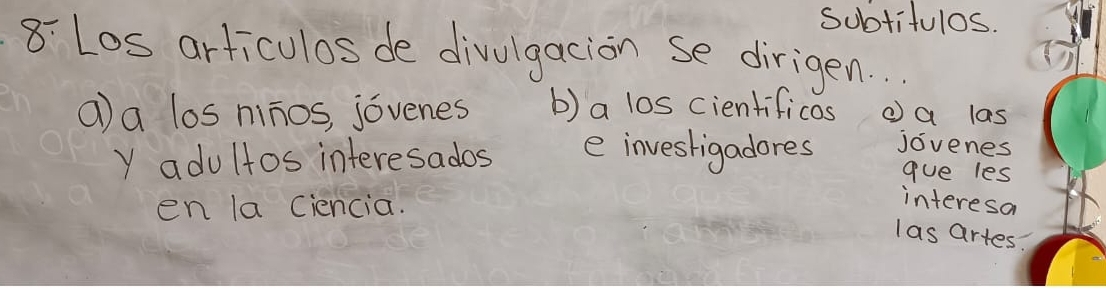 subtítulos.
8.- Los artículos de divulgación se dirigen...
a) a los niños, jóvenes
y adultos interesados
en la ciencia.
b) a los científicos
e investigadores
c) a las
jóvenes
que les
interesa
las artes.